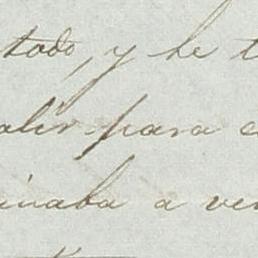 todo, y he t
alir para e
inaba a ver